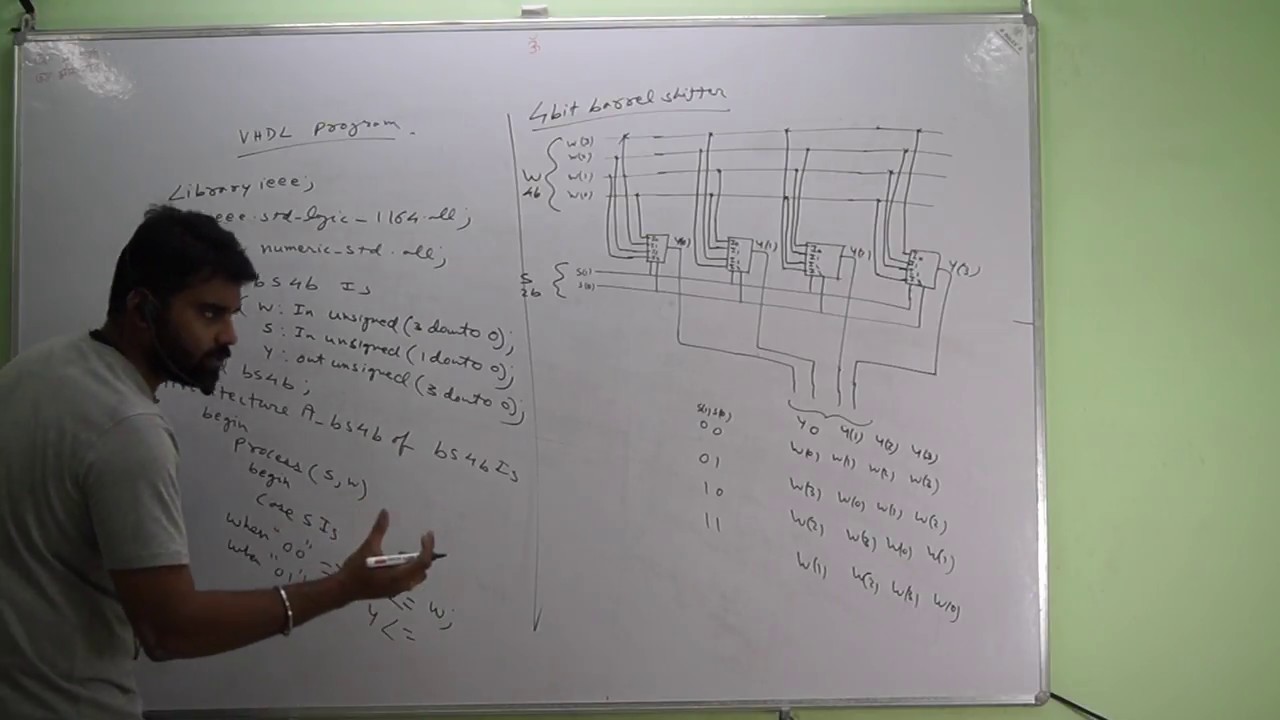 VHDL program.
Library ieee;
ieee.std-logic-1164.all;
numeric-std.all;
bs4b Is
w: In unsigned (3 downto 0);
S: In unsigned (1 downto 0);
Y: out unsigned (3 downto 0);
bs4b;
A_bs4b of bs4b Is
begin
process (S, w)
begin
Case S Is
when "00"
<= w;
when "01"
Y <=
4bit barrel shifter
W(3)
W(2)
W(1)
W(0)
W
4b
S
2b
S(1)
S(0)
Y(1)
Y(3)
S(1) S(0)
Y0 Y(1) Y(2) Y(3)
00 W(0) W(1) W(2) W(3)
01 W(3) W(0) W(1) W(2)
10 W(2) W(3) W(0) W(1)
11 W(1) W(2) W(3) W(0)